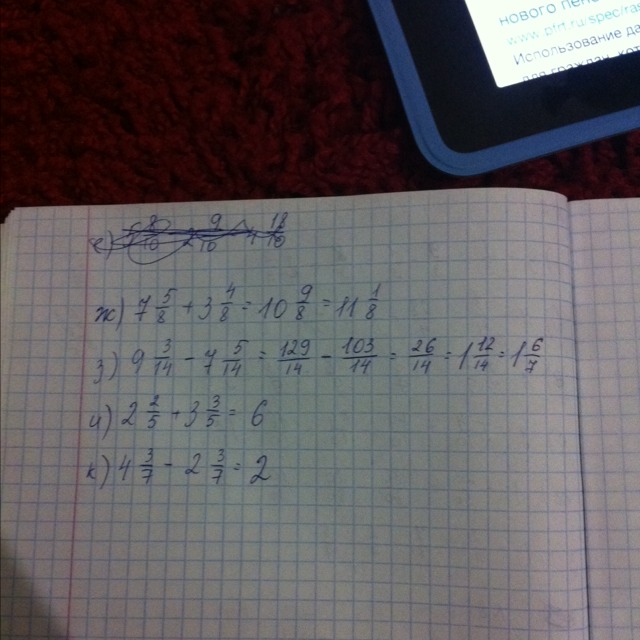 нового пен
www.pfrf.ru/spec/ra
Использование да
е)
ж) 7 5/8 + 3 4/8 = 10 9/8 = 11 1/8
з) 9 3/14 - 7 5/14 = 129/14 - 103/14 = 26/14 = 1 12/14 = 1 6/7
и) 2 2/5 + 3 3/5 = 6
к) 4 3/7 - 2 3/7 = 2